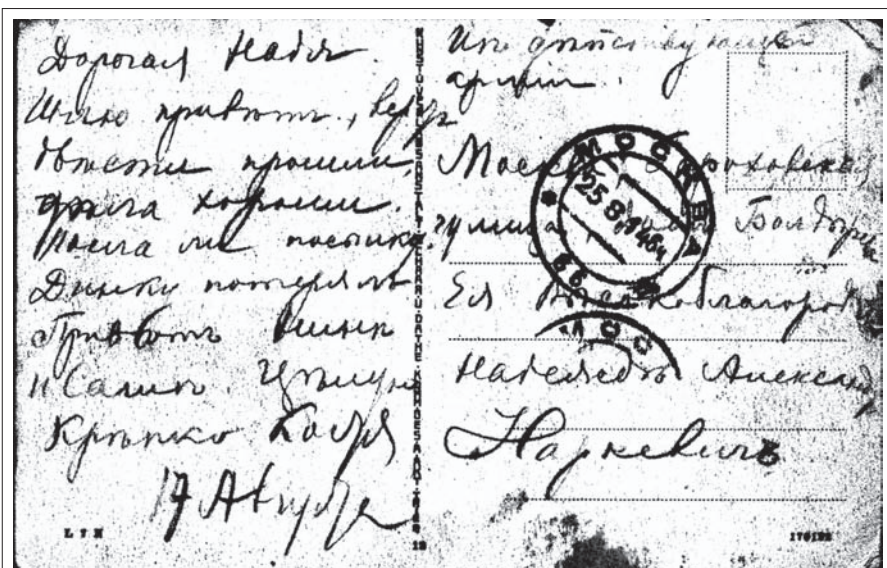 Дорогая Надя
Шлю привѣтъ, верх
двѣсти прошли,
дѣла хороши.
посылку.
Динку потерялъ
Привѣтъ
и Сашѣ. Цѣлую
Крѣпко Костя
17 Августа
Изъ дѣйствующей
арміи.
Москва Гороховская
улица домъ Болдырева
Ея Высокоблагородію
Надеждѣ Александр
Наркевичъ
МОСКВА
25 8 14
МОС
L T H